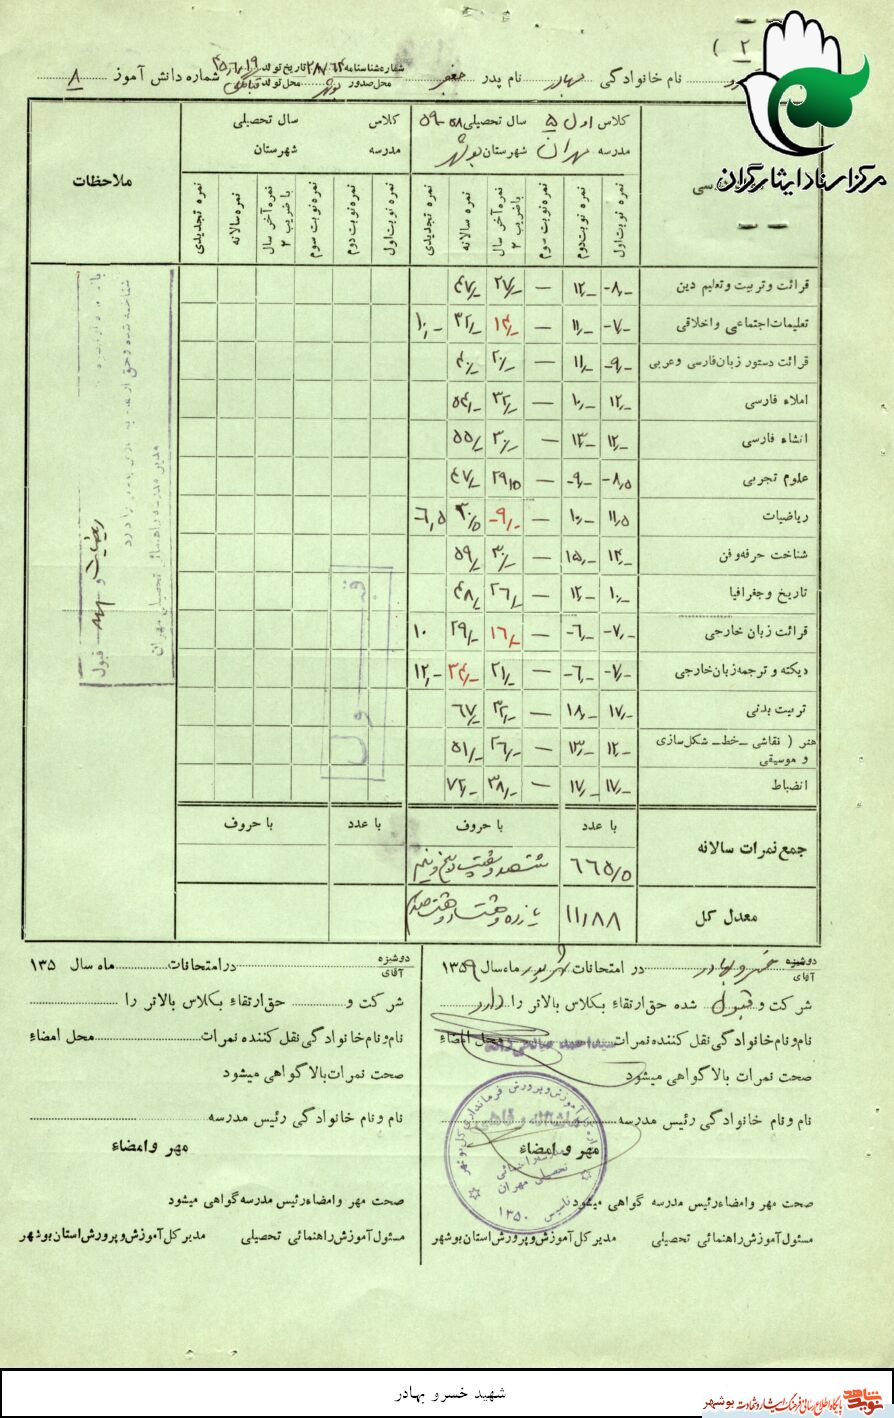 ( ۲ )
نام خانوادگی بهادر نام پدر جعفر شماره شناسنامه ۲۸۷/۶۲ تاریخ تولد
محل صدور بوشهر محل تولد شماره دانش آموز ۸
مرکز اسناد ایثارگران
کلاس اول ۵ سال تحصیلی ۵۸-۵۹
مدرسه مهران شهرستان بوشهر
کلاس سال تحصیلی
مدرسه شهرستان
ملاحظات
نمره نوبت اول نمره نوبت دوم نمره نوبت سوم نمره آخر سال با ضریب ۲ نمره سالانه نمره تجدیدی
نمره نوبت اول نمره نوبت دوم نمره نوبت سوم نمره آخر سال با ضریب ۲ نمره سالانه نمره تجدیدی
قرائت و تربیت و تعلیم دین ۸/- ۱۲/- — ۲۷/- ۴۷/-
تعلیمات اجتماعی و اخلاقی ۷/- ۱۱/- — ۱۴/- ۳۲/- ۱۰/-
قرائت دستور زبان فارسی و عربی ۹/- ۱۱/- — ۲۰/- ۴۰/-
املاء فارسی ۱۲/- ۱۰/- — ۳۲/- ۵۴/-
انشاء فارسی ۱۲/- ۱۳/- — ۳۰/- ۵۵/-
علوم تجربی ۸/۵ ۹/- — ۲۹/۵ ۴۷/-
ریاضیات ۱۱/۵ ۱۰/- — ۹/- ۳۰/۵ ۶/۵
شناخت حرفه و فن ۱۴/- ۱۵/- — ۳۰/- ۵۹/-
تاریخ و جغرافیا ۱۰/- ۱۲/- — ۲۶/- ۴۸/-
قرائت زبان خارجی ۷/- ۶/- — ۱۶/- ۲۹/- ۱۰
دیکته و ترجمه زبان خارجی ۷/- ۶/- — ۲۱/- ۳۴/- ۱۲/-
تربیت بدنی ۱۷/- ۱۸/- — ۳۲/- ۶۷/-
هنر ( نقاشی - خط - شکل سازی
و موسیقی ۱۲/- ۱۳/- — ۲۶/- ۵۱/-
انضباط ۱۷/- ۱۷/- — ۳۸/- ۷۲/-
قبول
مدیر مدرسه راهنمائی تحصیلی مهران
با عدد با حروف با عدد با حروف
جمع نمرات سالانه ۶۶۵/۵ ششصد و شصت و پنج و نیم
معدل کل ۱۱/۸۸ یازده و هشتاد و هشت صدم
دوشیزه
آقای خسرو بهادر در امتحانات شهریور ماه سال ۱۳۵۹
شرکت و قبول شده حق ارتقاء بکلاس بالاتر را دارد
نام و نام خانوادگی نقل کننده نمرات محل امضاء
صحت نمرات بالا گواهی میشود
نام و نام خانوادگی رئیس مدرسه
مهر و امضاء
صحت مهر و امضاء رئیس مدرسه گواهی میشود
مسئول آموزش راهنمائی تحصیلی مدیر کل آموزش و پرورش استان بوشهر
تاسیس ۱۳۵۰
دوشیزه
آقای در امتحانات ماه سال ۱۳۵
شرکت و حق ارتقاء بکلاس بالاتر را
نام و نام خانوادگی نقل کننده نمرات محل امضاء
صحت نمرات بالا گواهی میشود
نام و نام خانوادگی رئیس مدرسه
مهر و امضاء
صحت مهر و امضاء رئیس مدرسه گواهی میشود
مسئول آموزش راهنمائی تحصیلی مدیر کل آموزش و پرورش استان بوشهر
شهید خسرو بهادر
نوید شاهد
پایگاه اطلاع رسانی فرهنگ ایثار و شهادت بوشهر